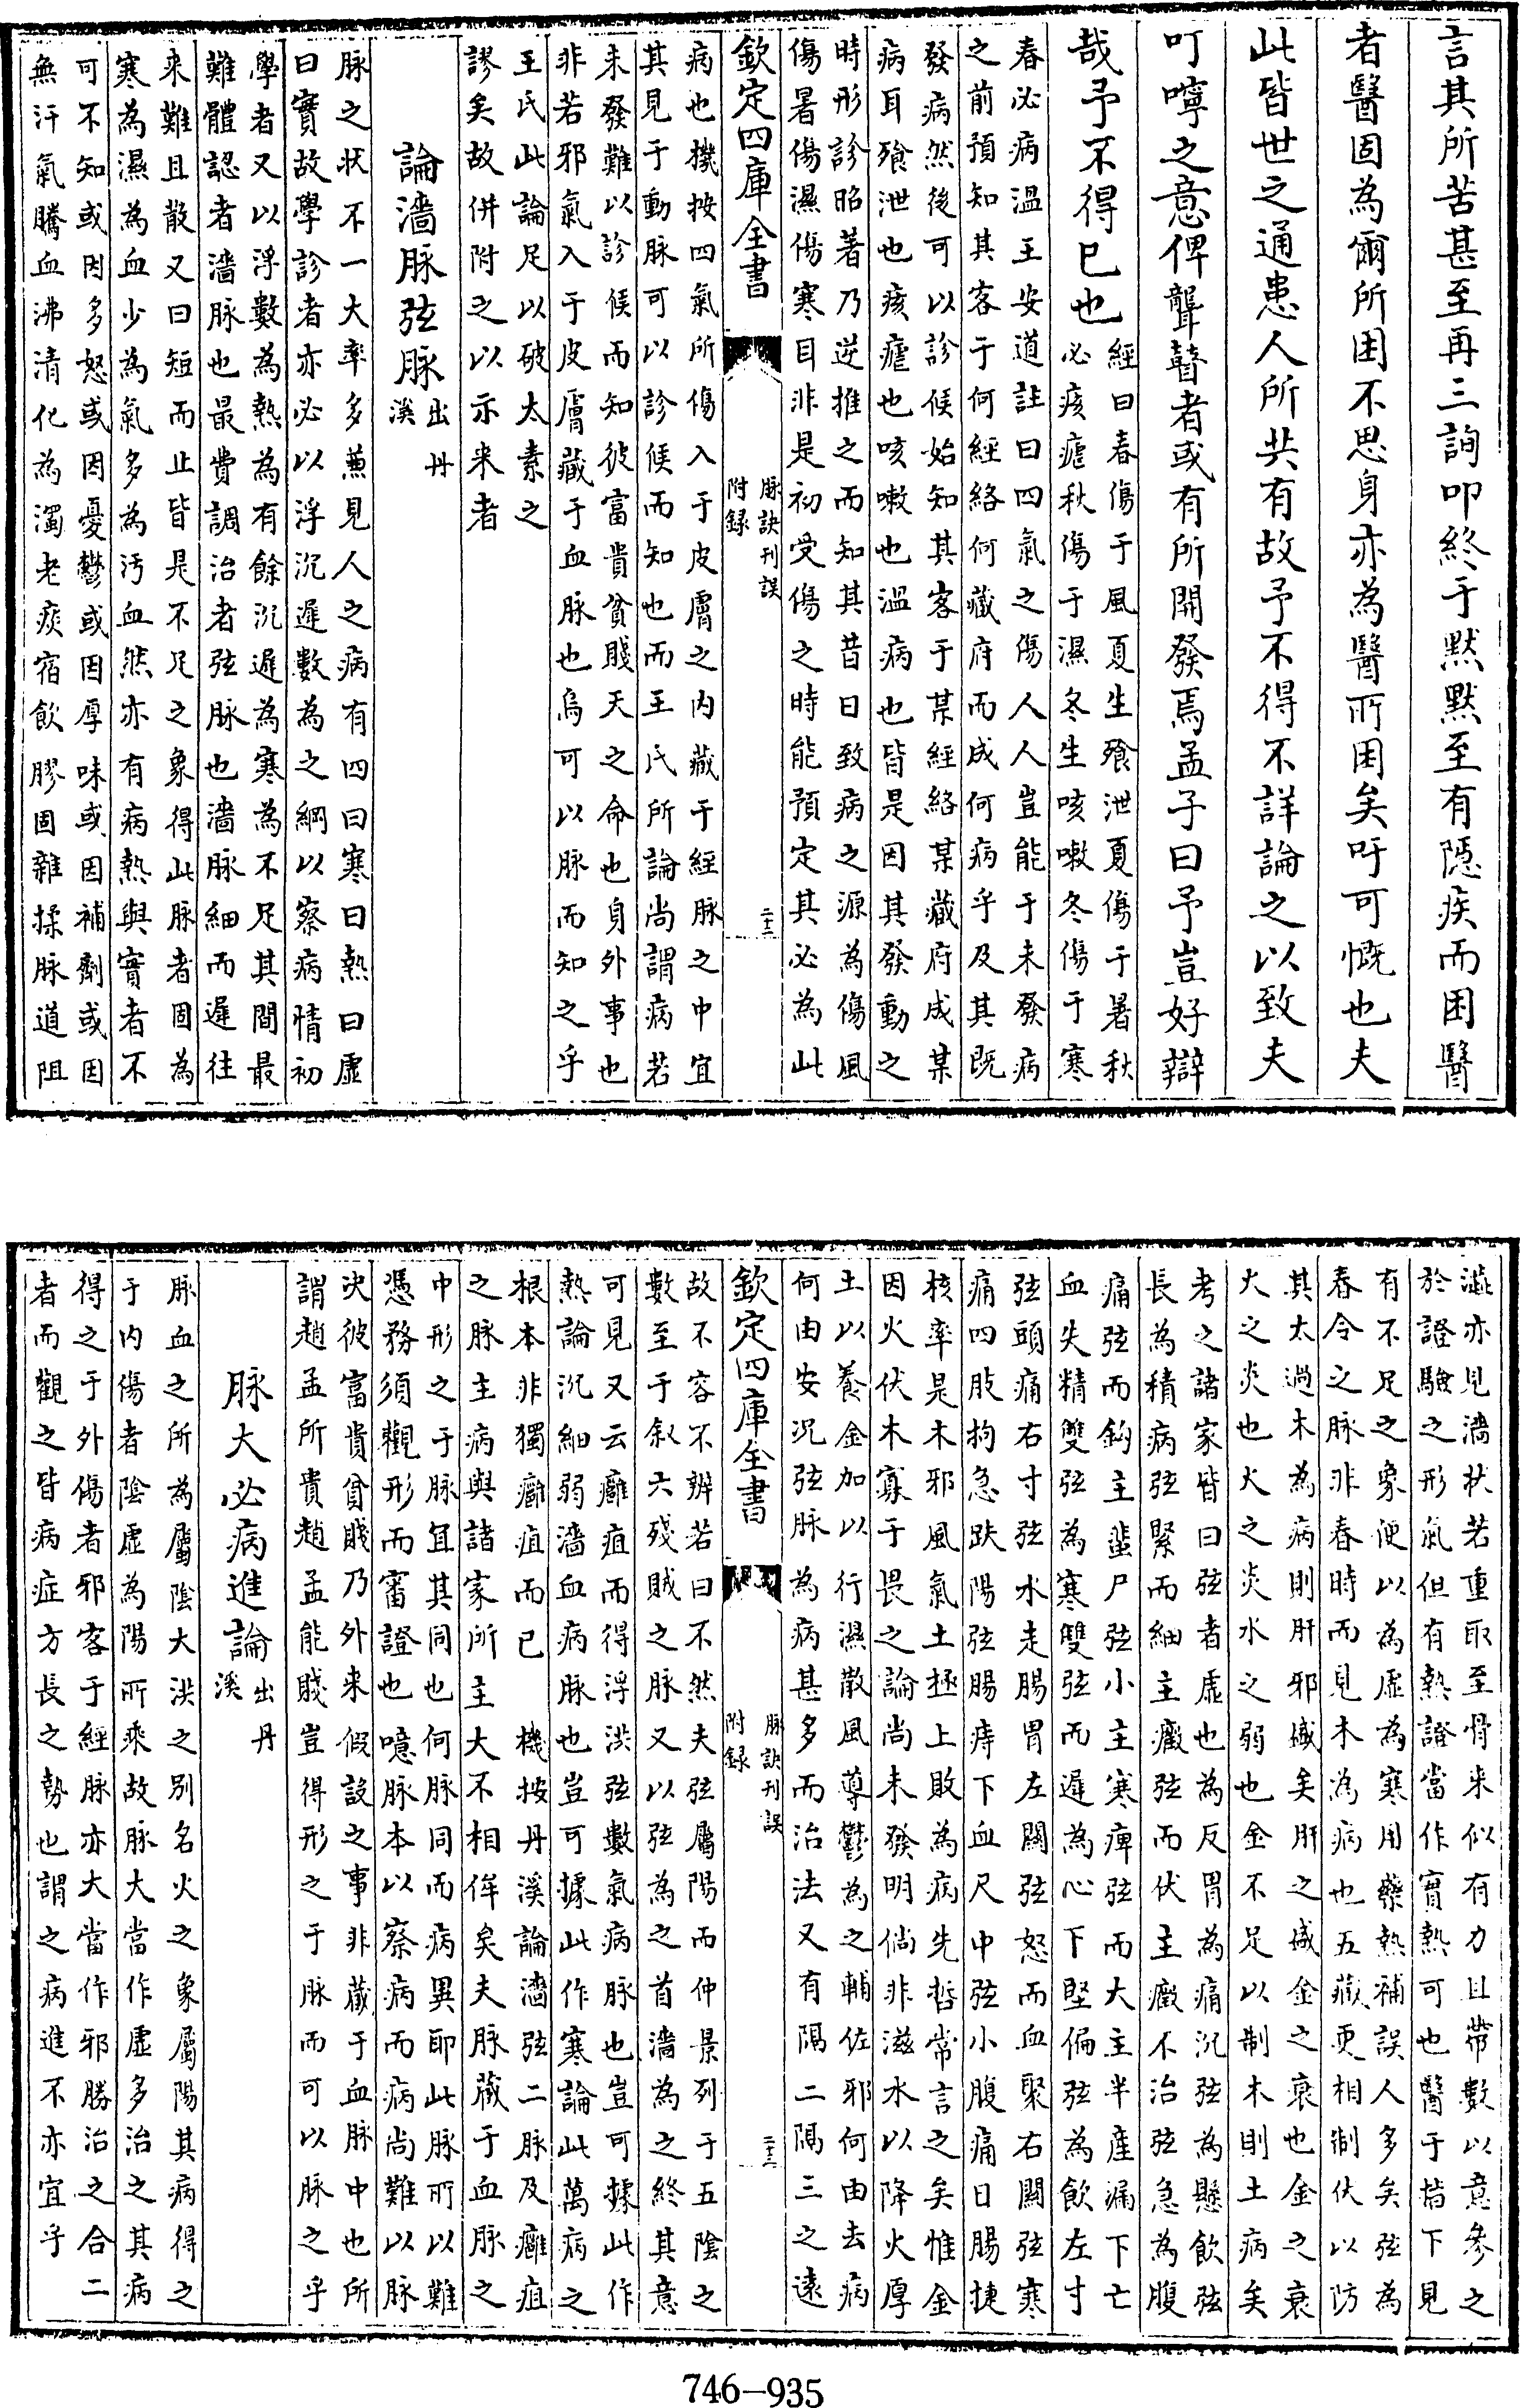 言其所苦甚至再三詢叩終于默默至有隱疾而困醫
者醫固為爾所困不思身亦為醫所困矣吁可慨也夫
此皆世之通患人所共有故予不得不詳論之以致夫
叮嚀之意俾聾瞽者或有所開發焉孟子曰予豈好辯
哉予不得已也
經曰春傷于風夏生飱泄夏傷于暑秋
必痎瘧秋傷于濕冬生咳嗽冬傷于寒
春必病溫王安道註曰四氣之傷人人豈能于未發病
之前預知其客于何經絡何藏府而成何病乎及其既
發病然後可以診候始知其客于某經絡某藏府成某
病耳飱泄也痎瘧也咳嗽也溫病也皆是因其發動之
時形診昭著乃逆推之而知其昔日致病之源為傷風
傷暑傷濕傷寒目非是初受傷之時能預定其必為此
欽定四庫全書
脉訣刊誤
附錄
二十二
病也機按四氣所傷入于皮膚之内藏于經脉之中宜
其見于動脉可以診候而知也而王氏所論尚謂病若
未發難以診候而知彼富貴貧賤天之命也身外事也
非若邪氣入于皮膚藏于血脉也烏可以脉而知之乎
王氏此論足以破太素之
謬矣故併附之以示来者
論濇脉弦脉
出丹
溪
脉之状不一大率多蕙見人之病有四曰寒曰熱曰虛
曰實故學診者亦必以浮沉遲數為之綱以察病情初
學者又以浮數為熱為有餘沉遲為寒為不足其間最
難體認者濇脉也最費調治者弦脉也濇脉細而遲往
来難且散又曰短而止皆是不足之象得此脉者固為
寒為濕為血少為氣多為汚血然亦有病熱與實者不
可不知或因多怒或因憂鬱或因厚味或因補劑或因
無汗氣騰血沸清化為濁老痰宿飲膠固雜揉脉道阻
澁亦見濇状若重取至骨来似有力且帶數以意參之
於證驗之形氣但有熱證當作實熱可也醫于指下見
有不足之象便以為虛為寒用藥熱補誤人多矣弦為
春令之脉非春時而見木為病也五藏更相制伏以防
其太過木為病則肝邪盛矣肝之盛金之衰也金之衰
火之炎也火之炎水之弱也金不足以制木則土病矣
考之諸家皆曰弦者虛也為反胃為痛沉弦為懸飲弦
長為積病弦緊而細主癥弦而伏主癥不治弦急為腹
痛弦而鈎主䘌尸弦小主寒痺弦而大主半産漏下亡
血失精雙弦為寒雙弦而遲為心下堅偏弦為飲左寸
弦頭痛右寸弦水走腸胃左關弦怒而血聚右關弦寒
痛四肢拘急趺陽弦腸痔下血尺中弦小腹痛曰腸捷
欽定四庫全書
脉訣刊誤
附錄
二十三
核率是木邪風氣土極上敗為病先哲常言之矣惟金
因火伏木寡于畏之論尚未發明倘非滋水以降火厚
土以養金加以行濕散風導鬱為之輔佐邪何由去病
何由安况弦脉為病甚多而治法又有隔二隔三之遠
故不容不辨若曰不然夫弦屬陽而仲景列于五陰之
數至于叙六殘賊之脉又以弦為之首濇為之終其意
可見又云癰疽而得浮洪弦數氣病脉也豈可據此作
熱論沉細弱濇血病脉也豈可據此作寒論此萬病之
根本非獨癰疽而已　機按丹溪論濇弦二脉及癰疽
之脉主病與諸家所主大不相侔矣夫脉藏于血脉之
中形之于脉宜其同也何脉同而病異耶此脉所以難
憑務須觀形而審證也噫脉本以察病而病尚難以脉
決彼富貴貧賤乃外来假設之事非藏于血脉中也所
謂趙孟所貴趙孟能賤豈得形之于脉而可以脉之乎
脉大必病進論
出丹
溪
脉血之所為屬陰大洪之别名火之象屬陽其病得之
于内傷者陰虛為陽所乘故脉大當作虛多治之其病
得之于外傷者邪客于經脉亦大當作邪勝治之合二
者而觀之皆病症方長之勢也謂之病進不亦宜乎
746-935